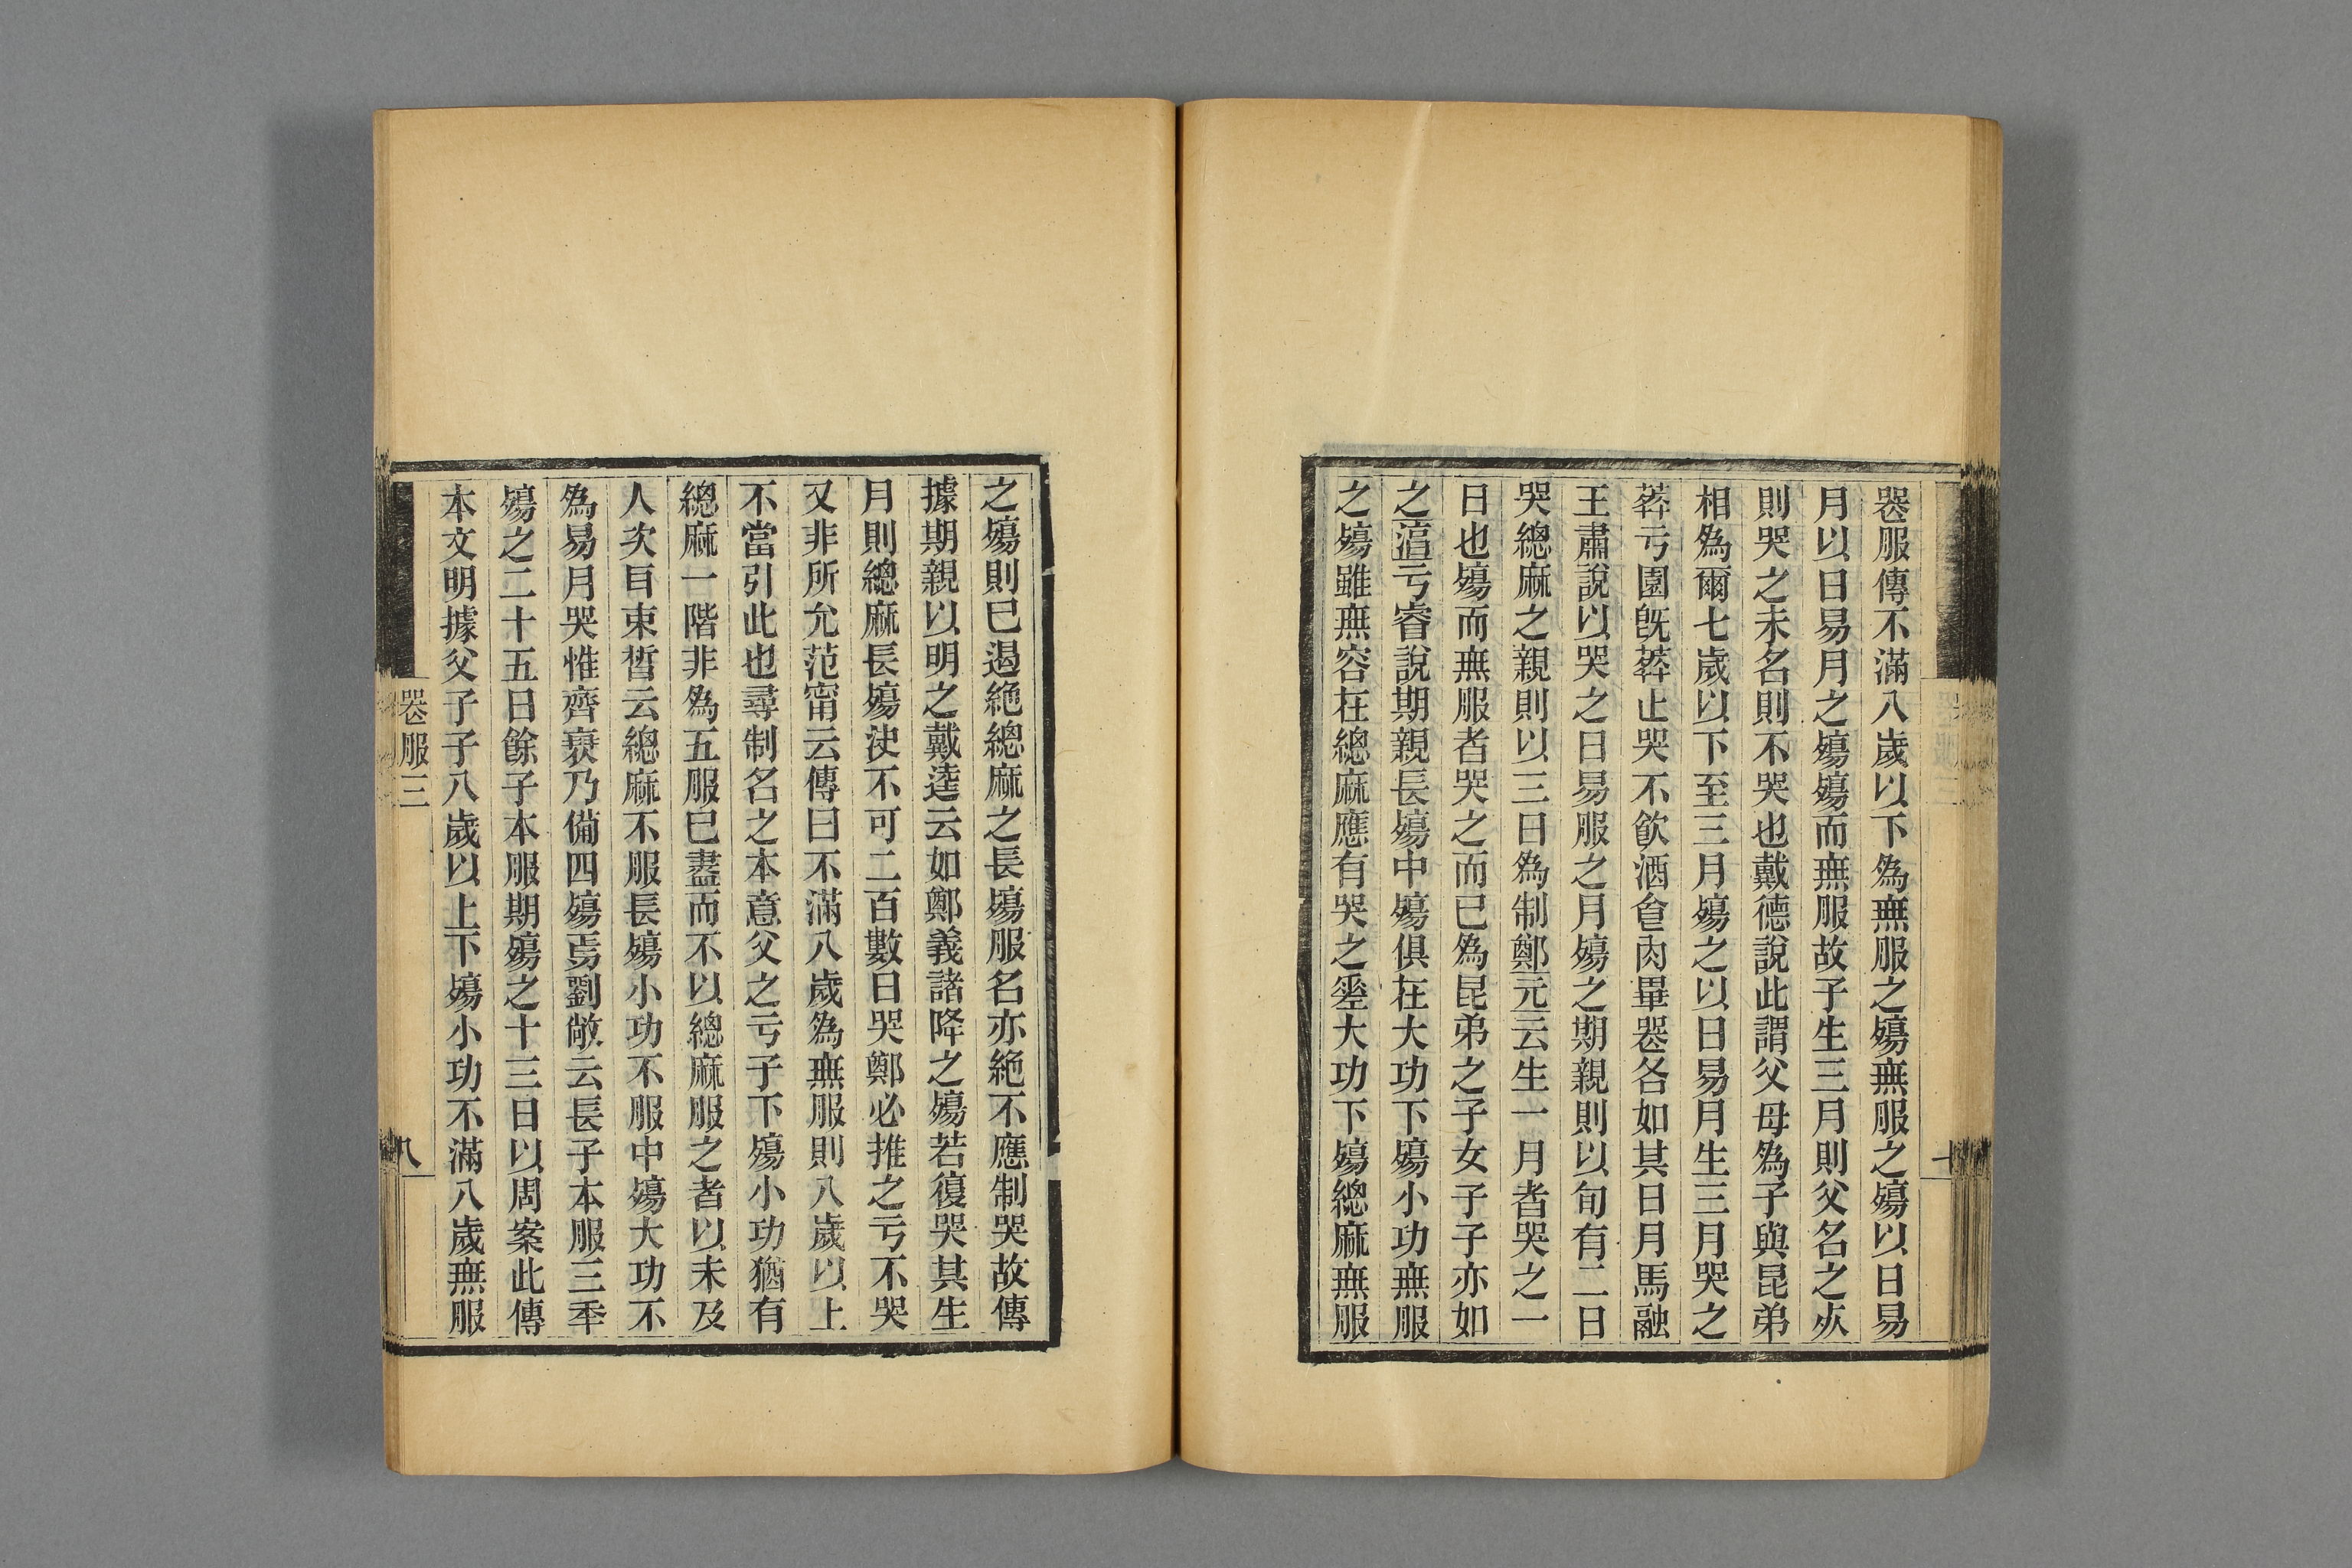 喪服傳不滿八歲以下爲無服之殤無服之殤以日易
月以日易月之殤殤而無服故子生三月則父名之死
則哭之未名則不哭也戴德說此謂父母爲子與昆弟
相爲爾七歲以下至三月殤之以日易月生三月哭之
葬亏園旣葬止哭不飮酒食肉畢喪各如其日月馬融
王肅說以哭之日易服之月殤之期親則以旬有二日
哭緦麻之親則以三日爲制鄭元云生一月者哭之一
日也殤而無服者哭之而已爲昆弟之子女子子亦如
之淳亏睿說期親長殤中殤俱在大功下殤小功無服
之殤雖無容在緦麻應有哭之差大功下殤緦麻無服
之殤則已遏絶緦麻之長殤服名亦絶不應制哭故傳
據期親以明之戴逵云如鄭義諸降之殤若復哭其生
月則緦麻長殤決不可二百數日哭鄭必推之亏不哭
又非所允范甯云傳曰不滿八歲爲無服則八歲以上
不當引此也尋制名之本意父之亏子下殤小功猶有
緦麻一階非爲五服已盡而不以緦麻服之者以未及
人次耳束晳云緦麻不服長殤小功不服中殤大功不
爲易月哭惟齊衰乃備四殤焉劉敞云長子本服三秊
殤之二十五日餘子本服期殤之十三日以周案此傳
本文明據父子子八歲以上下殤小功不滿八歲無服
喪服三
八